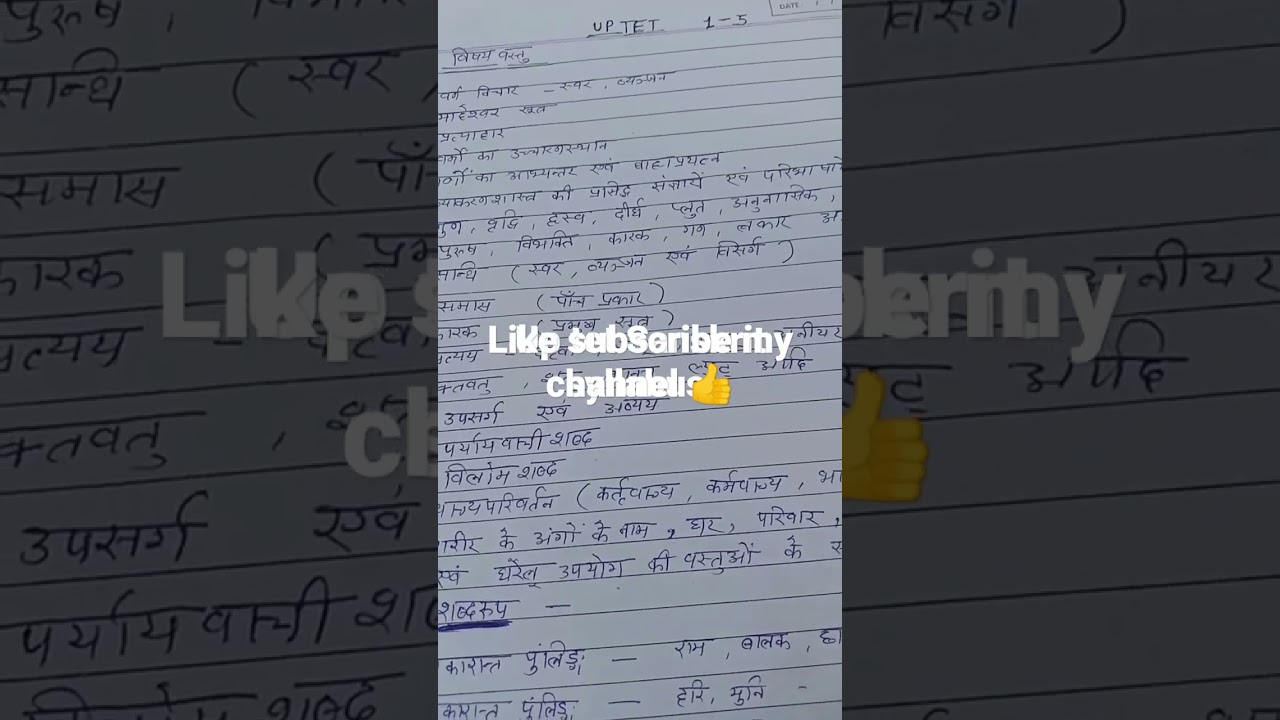 DATE
UPTET 1-5
विषय वस्तु
वर्ण विचार - स्वर, व्यञ्जन
माहेश्वर सूत्र
प्रत्याहार
वर्णों का उच्चारणस्थान
वर्णों का आभ्यन्तर एवं बाह्यप्रयत्न
व्याकरणशास्त्र की प्रसिद्ध संज्ञायें एवं परिभाषायें
गुण, वृद्धि, ह्रस्व, दीर्घ, प्लुत, अनुनासिक,
पुरूष, विभक्ति, कारक, गण, लकार
सन्धि (स्वर, व्यञ्जन एवं विसर्ग)
समास (पाँच प्रकार)
कारक (प्रमुख सूत्र)
प्रत्यय -
क्तवतु, आदि
उपसर्ग एवं अव्यय
पर्यायवाची शब्द
विलोम शब्द
वाच्यपरिवर्तन (कर्तृवाच्य, कर्मवाच्य,
शरीर के अंगों के नाम, घर, परिवार,
एवं घरेलू उपयोग की वस्तुओं के
शब्दरूप -
कारान्त पुंलिङ्ग - राम, बालक,
कारान्त पुंलिङ्ग - हरि, मुनि -
Like subscribe my
channel 👍